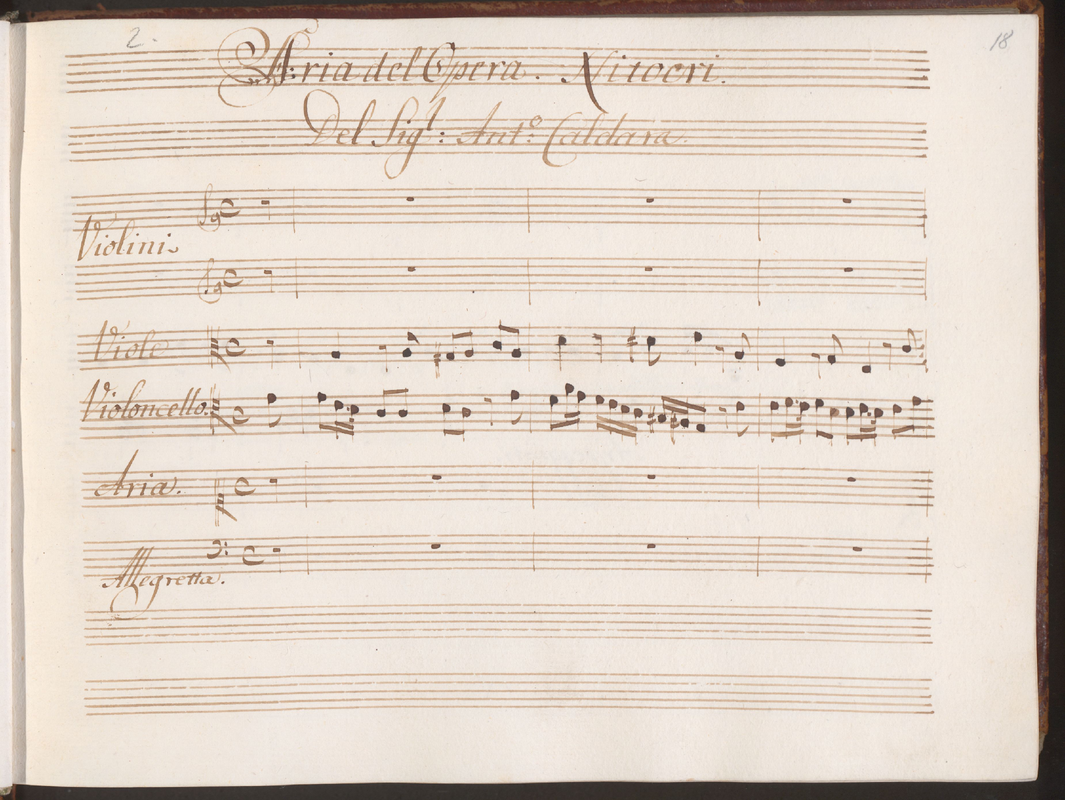 2.
18
Aria del Opera. Nitocri.
Del Sigl: Anto: Caldara.
Violini
Viole
Violoncello.
Aria.
Allegretto.